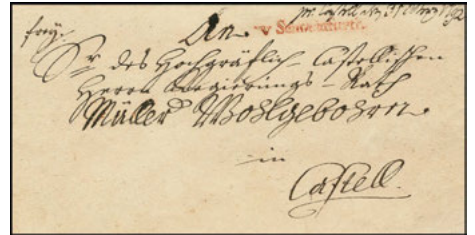 frey.
An
v Schweinfurth.
Sr. des Hochgräflich-Castellischen
Herrn Regierings-Rath
Müller Wohlgebohrn
in
Castell.